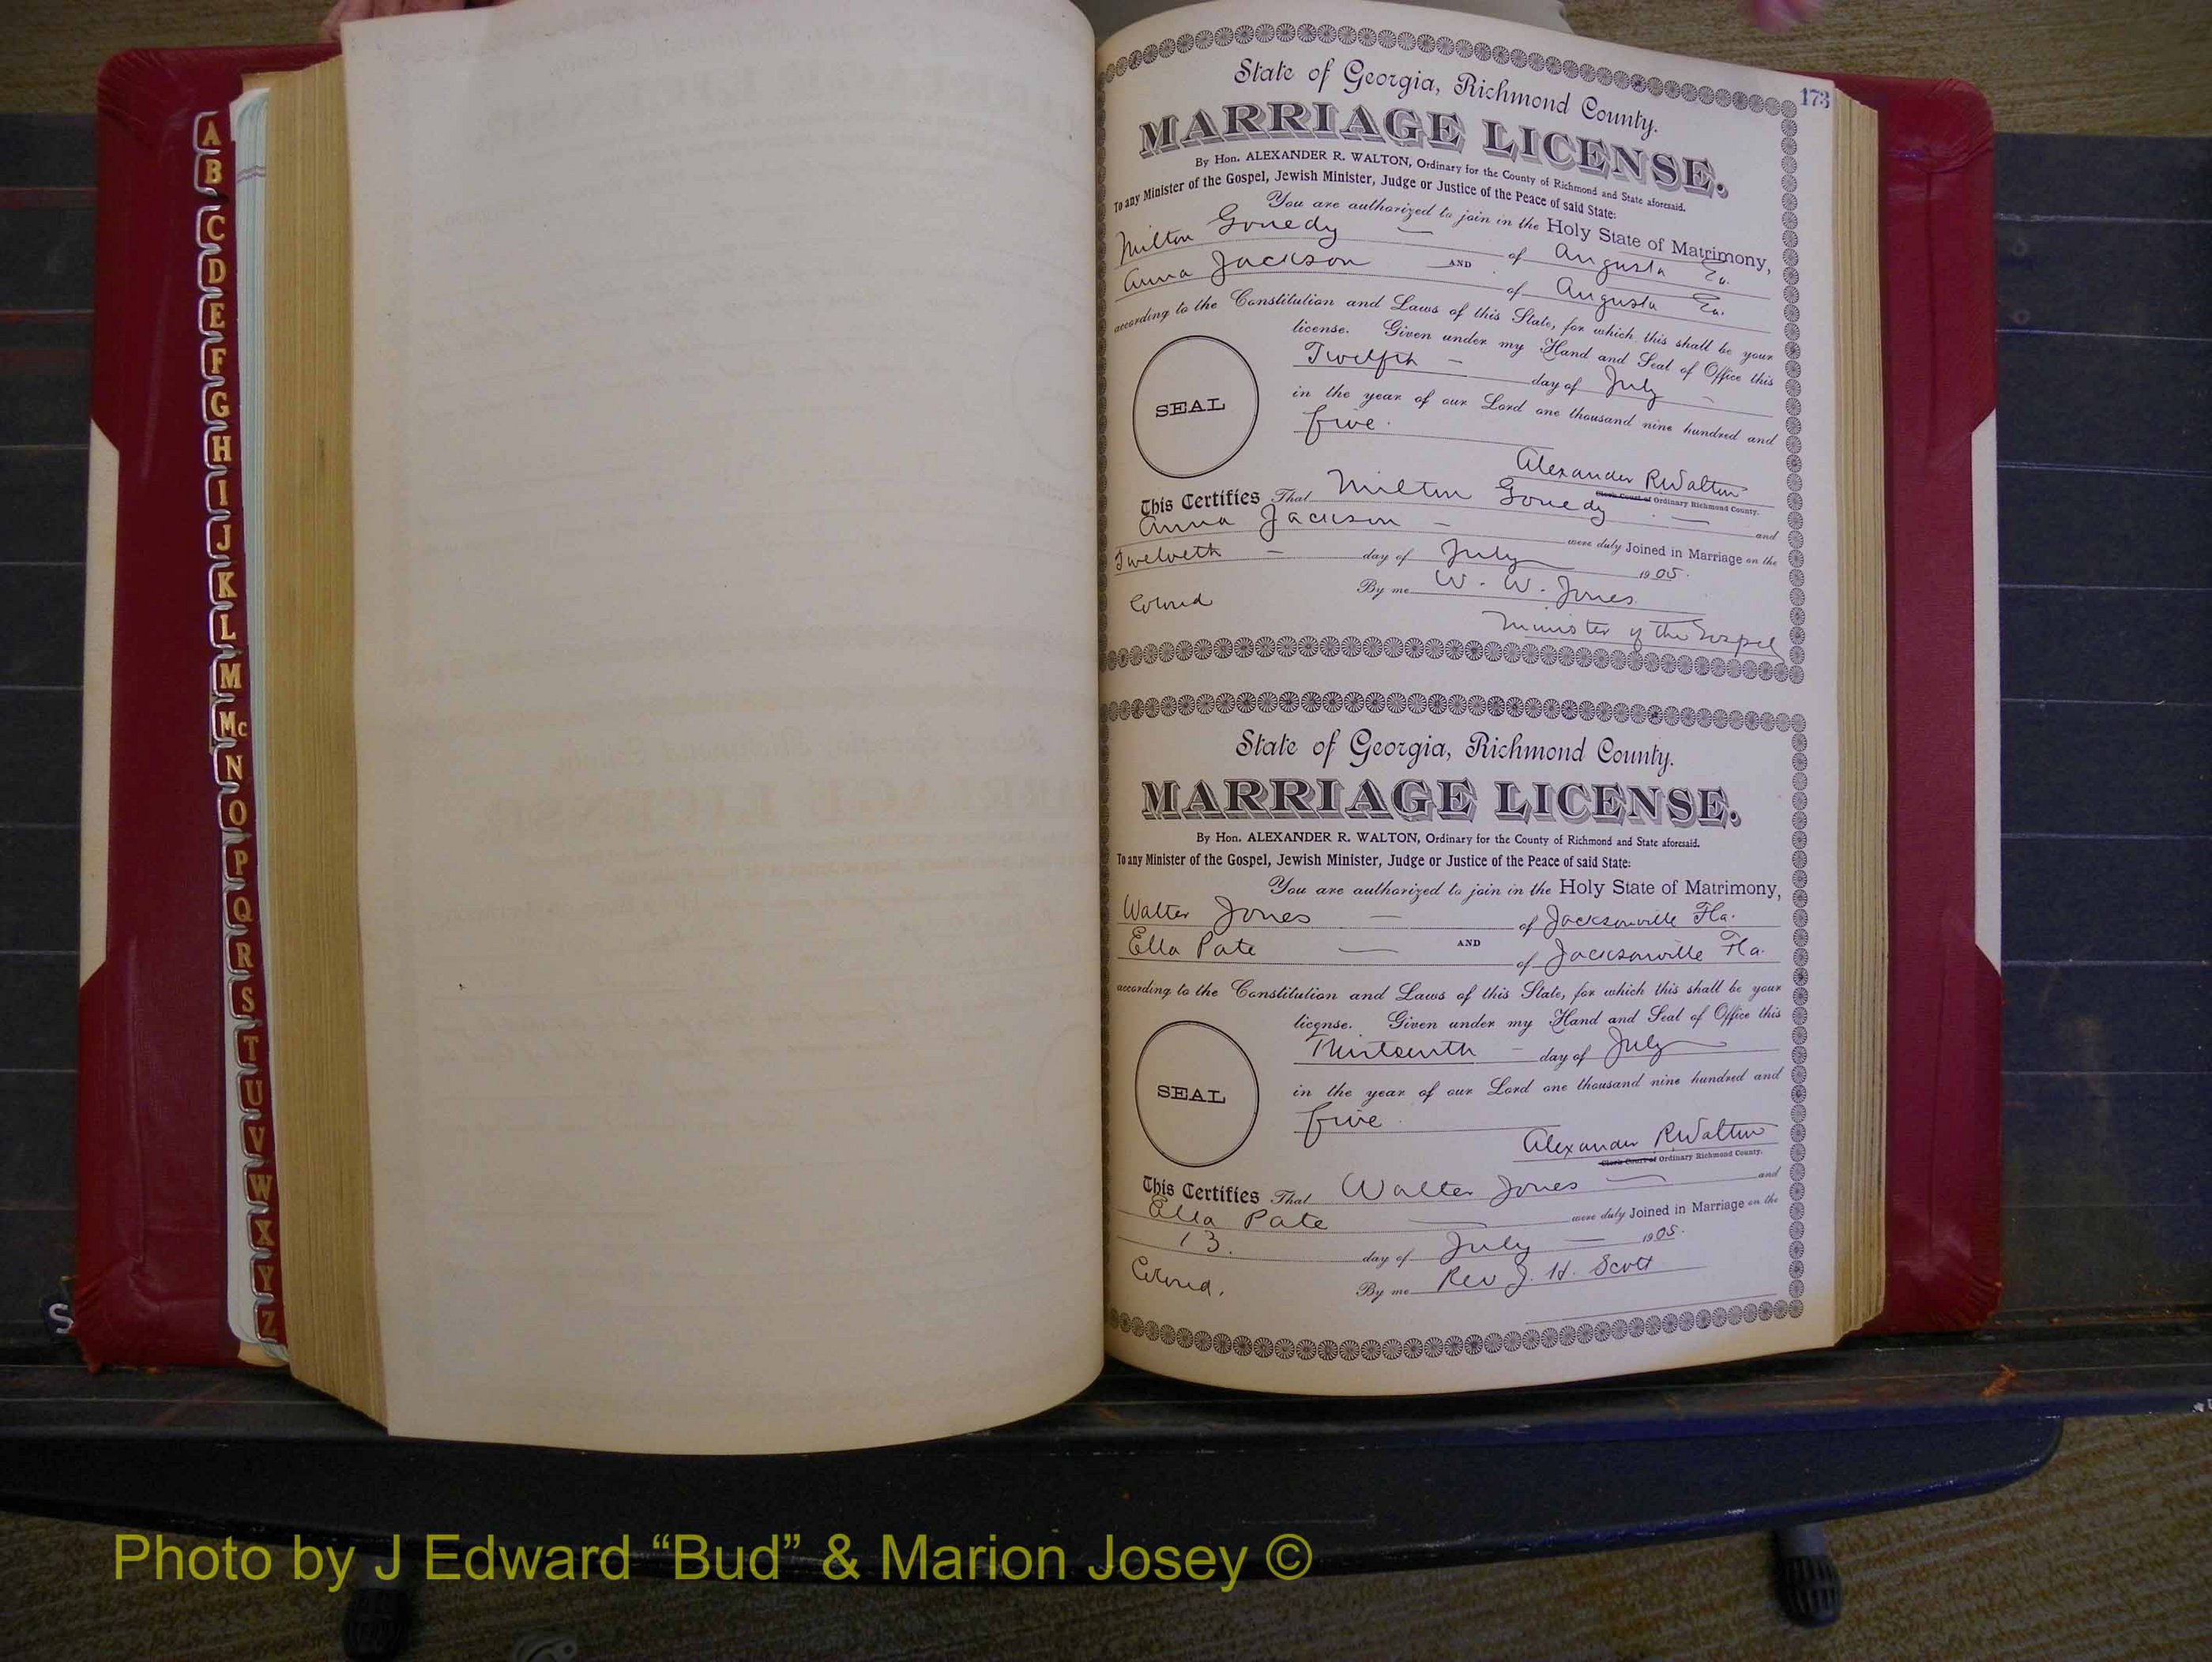 A
B
C
D
E
F
G
H
I
J
K
L
M
Mc
N
O
P
Q
R
S
T
U
V
W
X
Y
Z
173
State of Georgia, Richmond County.
MARRIAGE LICENSE.
By Hon. ALEXANDER R. WALTON, Ordinary for the County of Richmond and State aforesaid.
To any Minister of the Gospel, Jewish Minister, Judge or Justice of the Peace of said State:
You are authorized to join in the Holy State of Matrimony,
Milton Gouedy — of Augusta Ga.
AND
Anna Jackson of Augusta Ga.
according to the Constitution and Laws of this State, for which this shall be your
license. Given under my Hand and Seal of Office this
Twelfth — day of July
in the year of our Lord one thousand nine hundred and
five.
SEAL
Alexander R Walton
Clerk Court of Ordinary Richmond County.
This Certifies That Milton Gouedy — and
Anna Jackson — were duly Joined in Marriage on the
Twelveth — day of July 1905.
By me W. W. Jones
Colored Minister of the Gospel
State of Georgia, Richmond County.
MARRIAGE LICENSE.
By Hon. ALEXANDER R. WALTON, Ordinary for the County of Richmond and State aforesaid.
To any Minister of the Gospel, Jewish Minister, Judge or Justice of the Peace of said State:
You are authorized to join in the Holy State of Matrimony,
Walter Jones — of Jacksonville Fla.
AND
Ella Pate — of Jacksonville Fla.
according to the Constitution and Laws of this State, for which this shall be your
license. Given under my Hand and Seal of Office this
Thirteenth — day of July
in the year of our Lord one thousand nine hundred and
five.
SEAL
Alexander R Walton
Clerk Court of Ordinary Richmond County.
This Certifies That Walter Jones — and
Ella Pate — were duly Joined in Marriage on the
13. day of July — 1905.
Colored. By me Rev J. H. Scott
S
Photo by J Edward “Bud” & Marion Josey ©